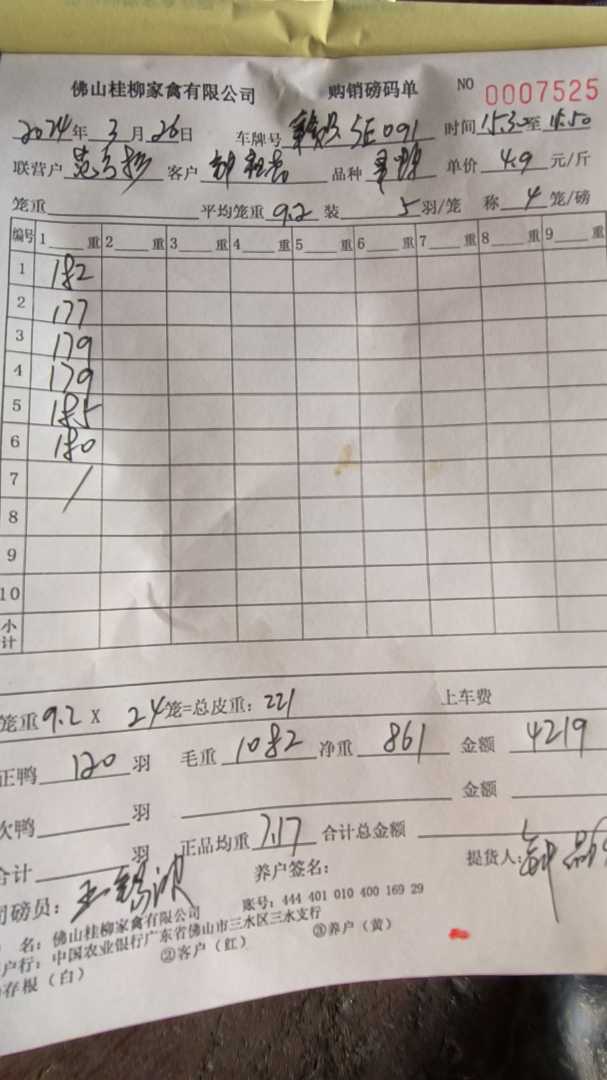 佛山桂柳家禽有限公司 购销磅码单 NO 0007525
2024年 3月 26日 车牌号 5E091 时间 15:30至 16:50
联营户 客户 品种 单价 4.9 元/斤
笼重 平均笼重 9.2 装 5 羽/笼 称 4 笼/磅
编号 1 重 2 重 3 重 4 重 5 重 6 重 7 重 8 重 9 重
1 182
2 177
3 179
4 179
5 185
6 180
7 /
8
9
10
小计
笼重 9.2 X 24 笼=总皮重: 221 上车费
正鸭 120 羽 毛重 1082 净重 861 金额 4219
次鸭 羽 金额
合计 羽 正品均重 7.17 合计总金额
司磅员: 养户签名: 提货人:
名: 佛山桂柳家禽有限公司 账号: 444 401 010 400 169 29
户行: 中国农业银行广东省佛山市三水区三水支行
存根(白) ②客户(红) ③养户(黄)